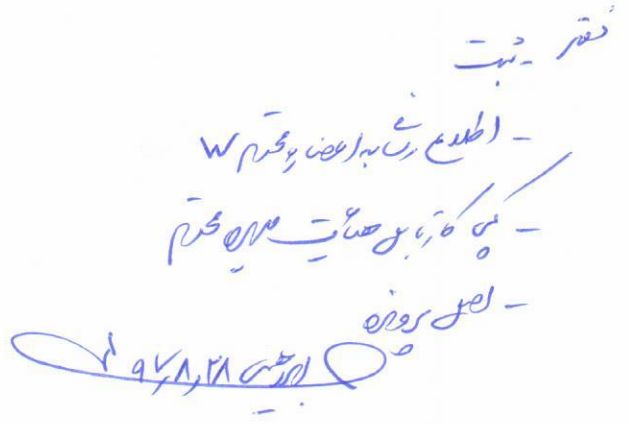 دفتر - ثبت
- اطلاع رسانی به اعضای محترم
- کپی کارتابل هیأت مدیره محترم
- اصل پرونده
۹۷,۸,۲۸